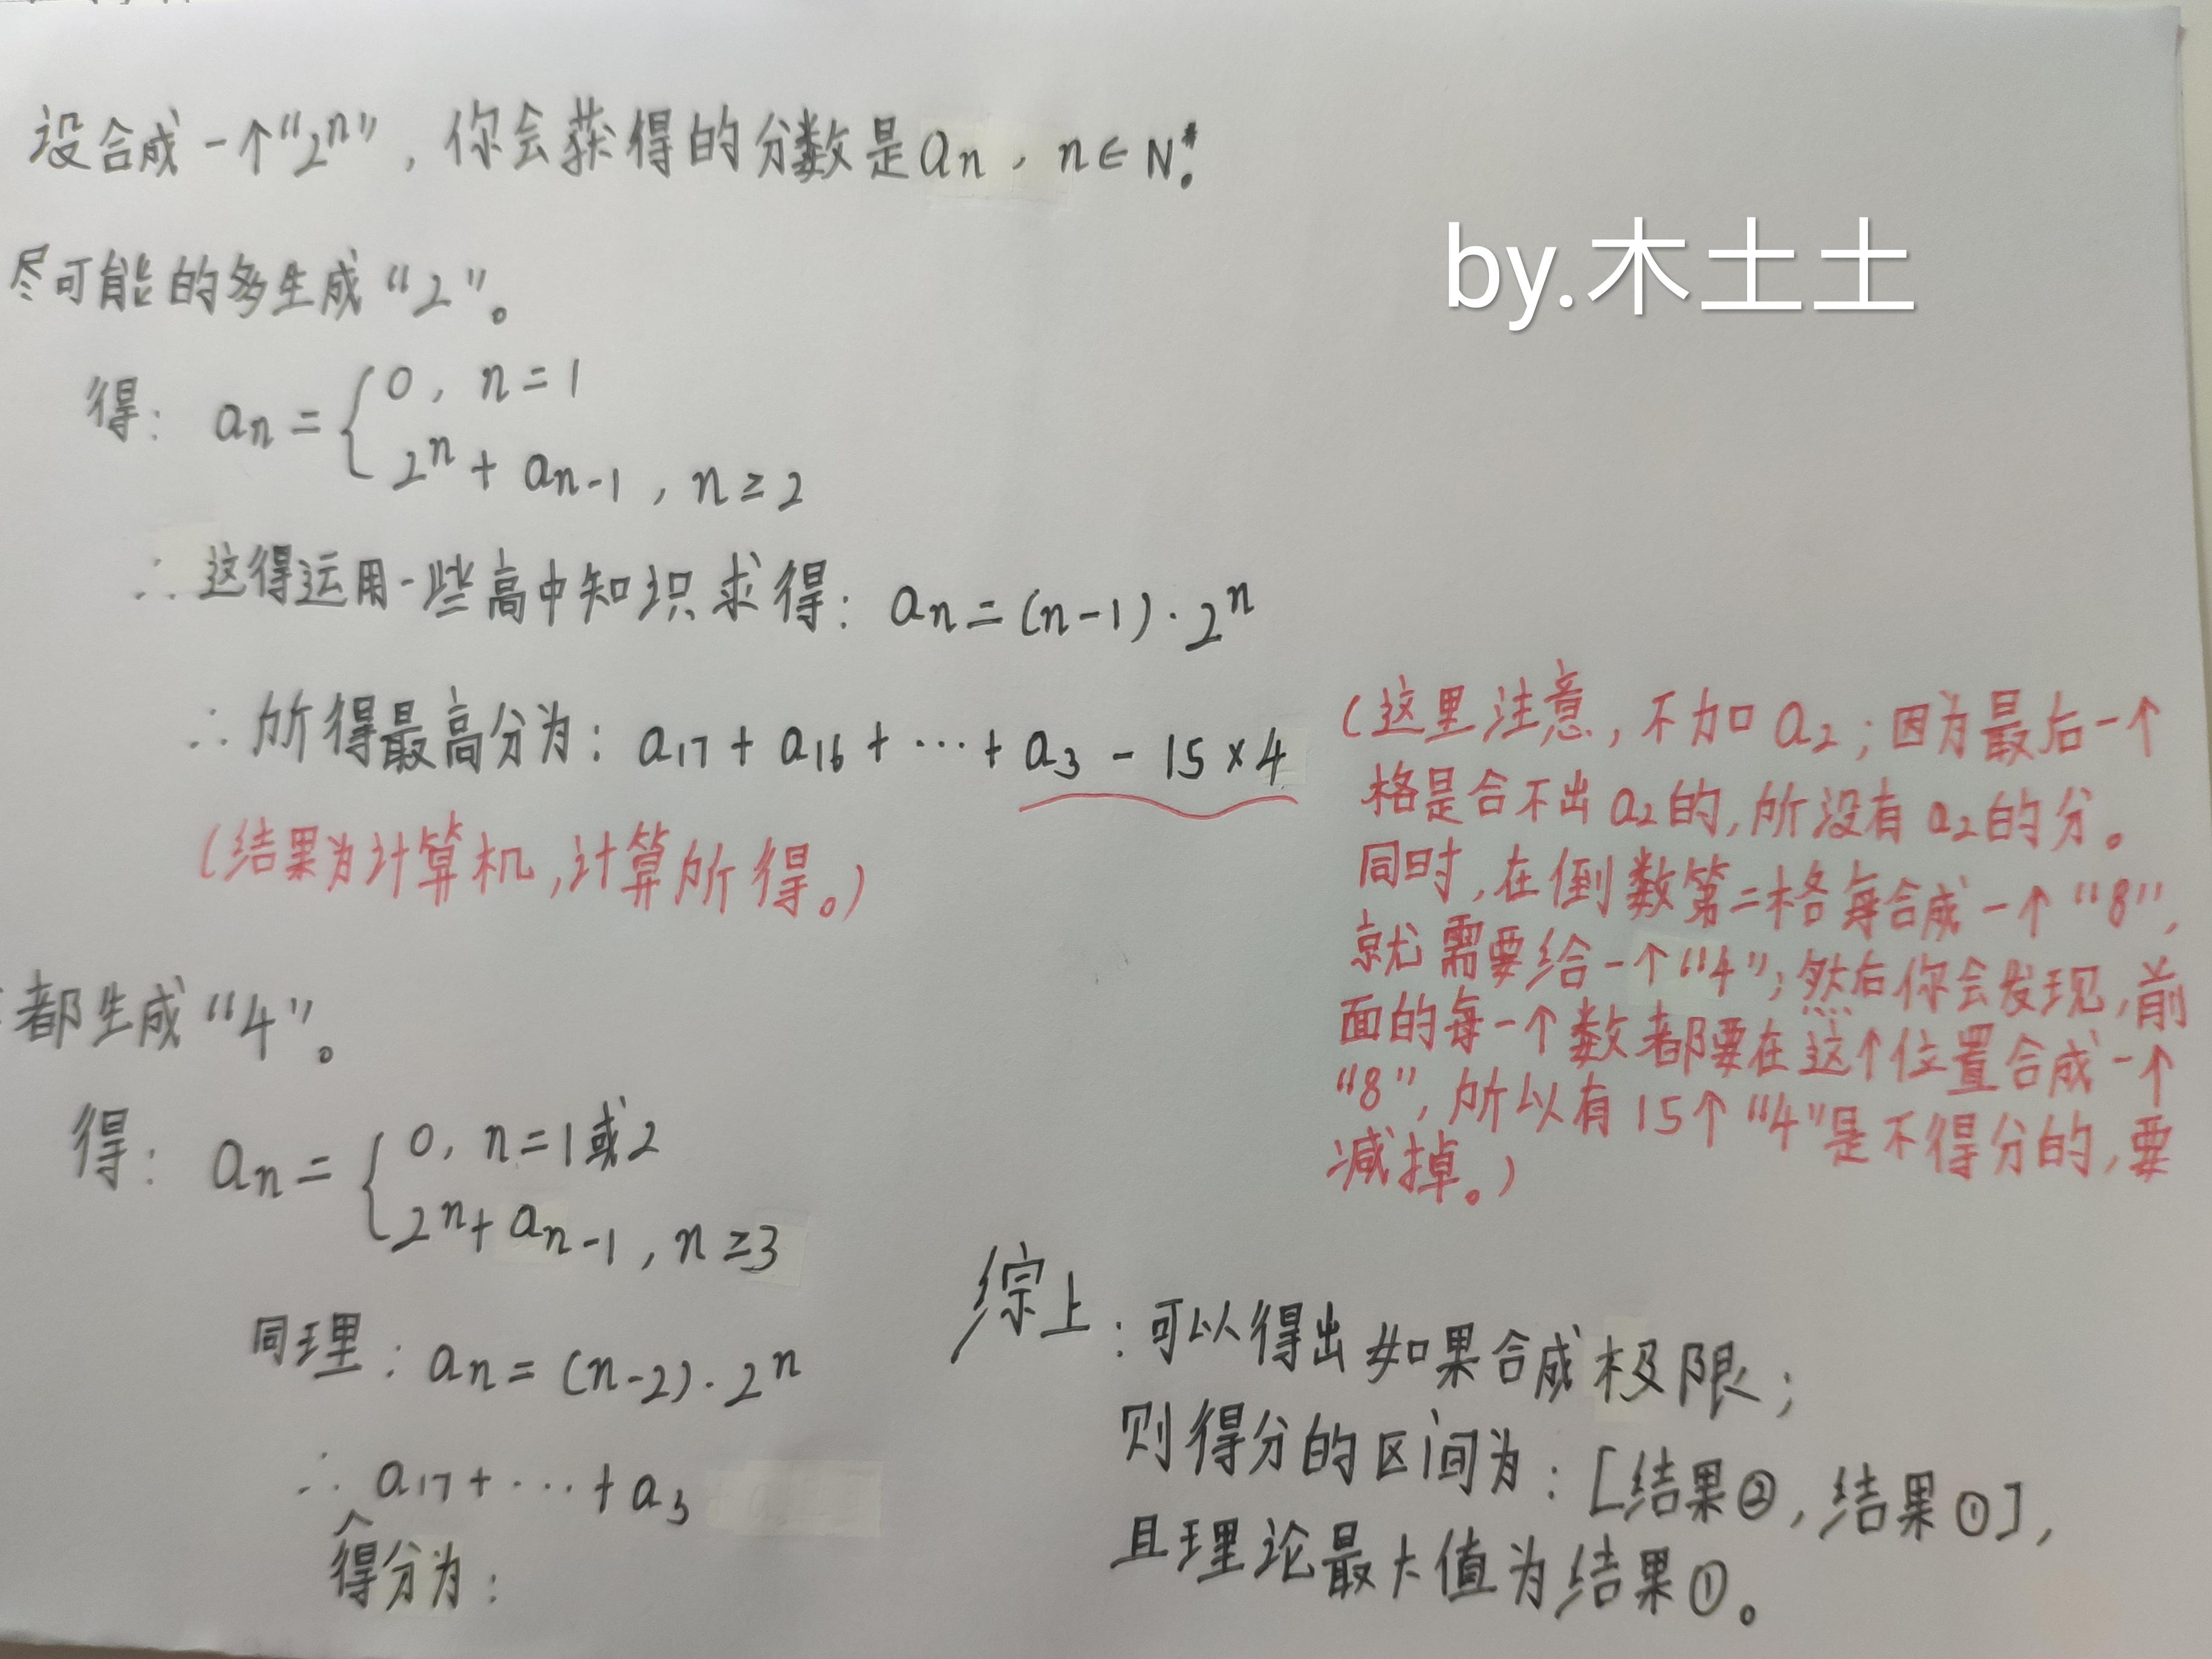 设合成一个“2ⁿ”，你会获得的分数是aₙ，n∈N*。
by.木土土
尽可能的多生成“2”。
得：aₙ = { 0，n=1
2ⁿ + aₙ₋₁，n≥2
∴ 这得运用一些高中知识求得：aₙ=(n-1)·2ⁿ
∴ 所得最高分为：a₁₇ + a₁₆ + … + a₃ - 15×4
（结果为计算机，计算所得。）
（这里注意，不加a₂；因为最后一个
格是合不出a₂的，所没有a₂的分。
同时，在倒数第二格每合成一个“8”，
就需要给一个“4”；然后你会发现，前
面的每一个数都要在这个位置合成一个
“8”，所以有15个“4”是不得分的，要
减掉。）
都生成“4”。
得：aₙ = { 0，n=1或2
2ⁿ + aₙ₋₁，n≥3
同理：aₙ=(n-2)·2ⁿ
∴ a₁₇ + … + a₃
得分为：
综上：可以得出如果合成极限；
则得分的区间为：[结果②，结果①]，
且理论最大值为结果①。